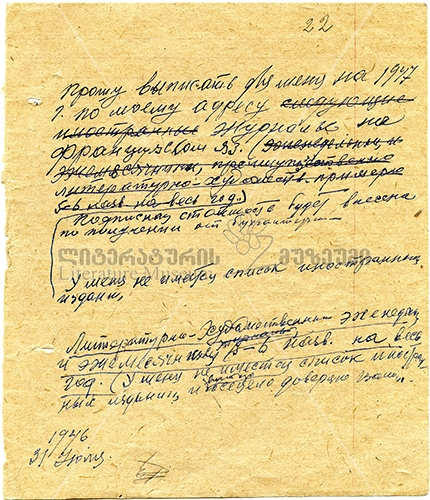 22
Прошу выписать для меня на 1947
г. по моему адресу следующие
иностранные журналы на
французском яз. (еженедельн. и
ежемесячники, преимущественно
литературно-художеств. примерно
5-6 назв. на весь год.)
Подписная стоимость будет внесена
по получении от бухгалтерии
ლიტერატურის მუზეუმი
Literature Museum
У меня не имеется список иностранных
издани,
Литературно-художественные еженедел
и ежемесячники 5-6 назв. на весь
год. (У меня не имеется список иностран
ных изданиц и всецело доверяю
1946
31 Июля.